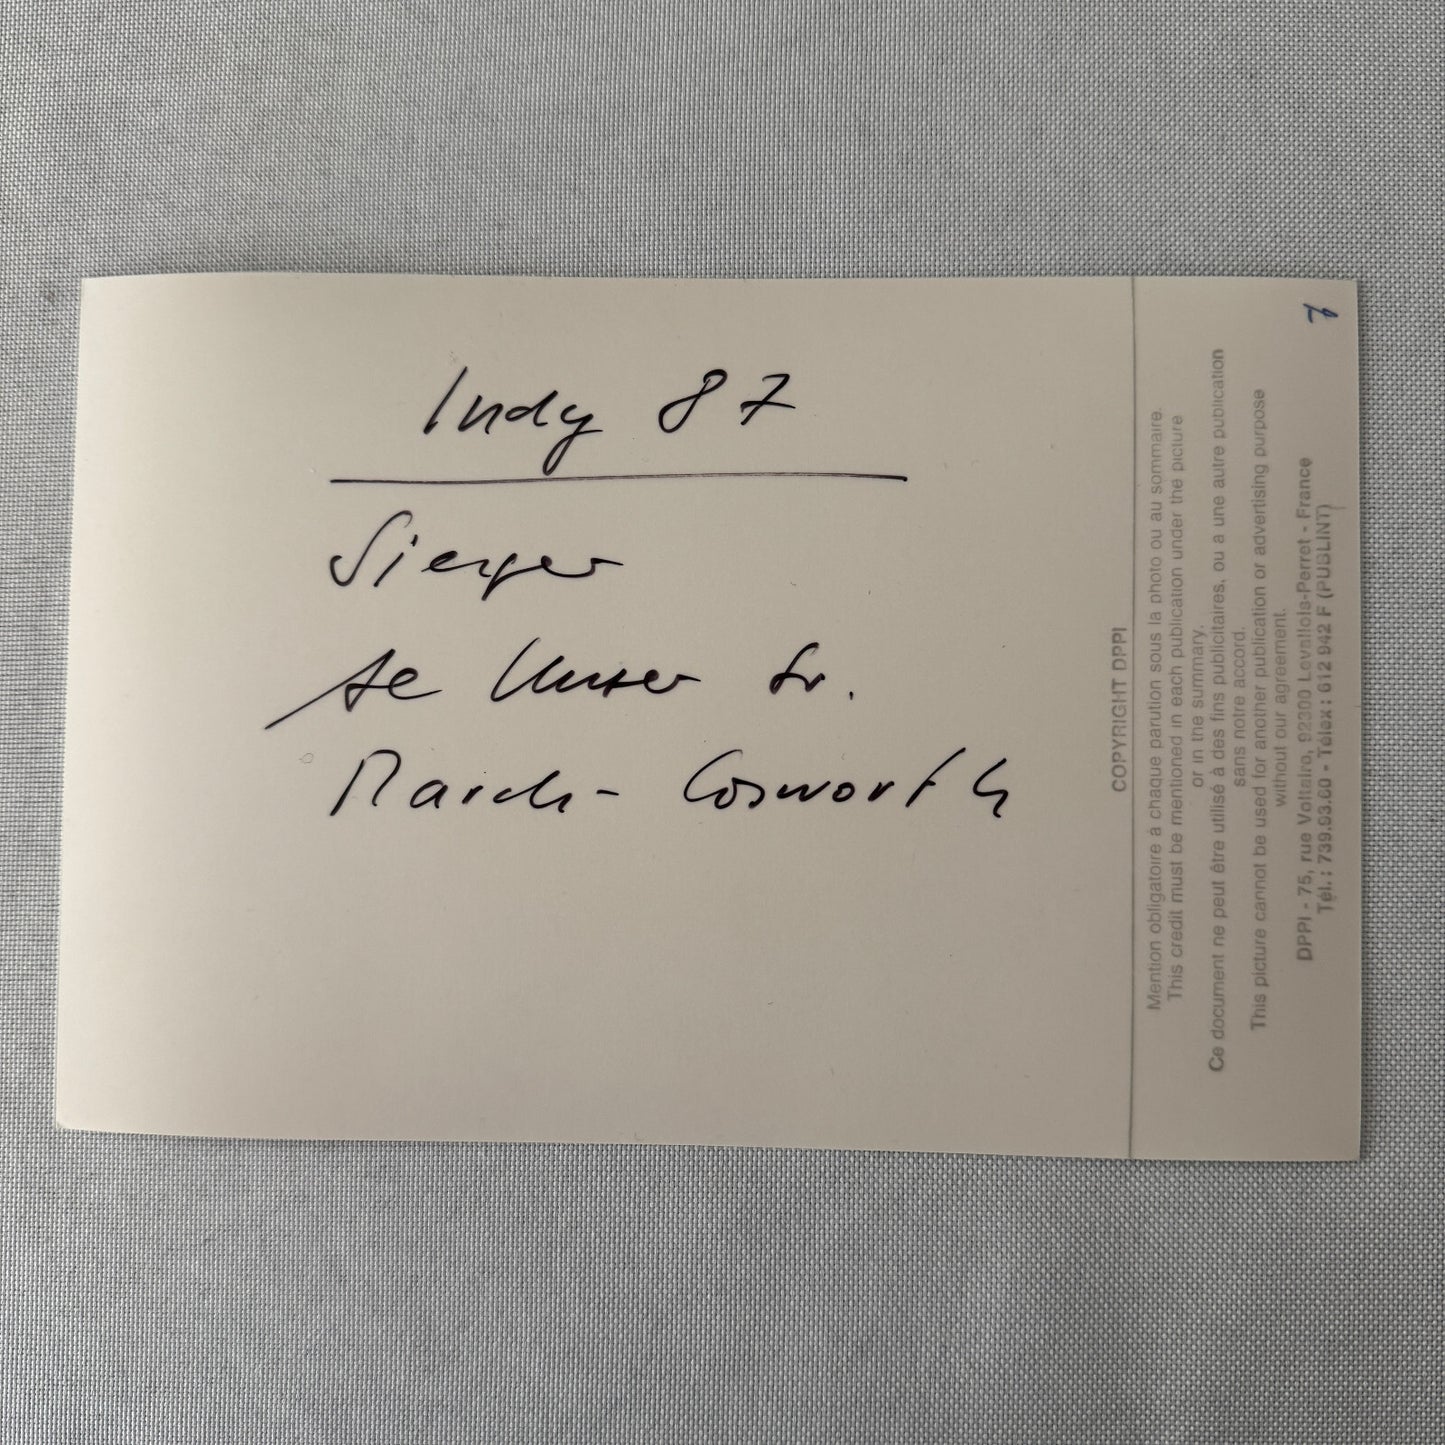 Indy 87
Sieger
Al Unser Sr.
March-Cosworth
COPYRIGHT DPPI
Mention obligatoire à chaque parution sous la photo ou au sommaire.
This credit must be mentioned in each publication under the picture
or in the summary.
Ce document ne peut être utilisé à des fins publicitaires, ou a une autre publication
sans notre accord.
This picture cannot be used for another publication or advertising purpose
without our agreement.
DPPI - 75, rue Voltaire, 92300 Levallois-Perret - France
Tél. : 739.93.60 - Télex : 612 942 F (PUBLINT)